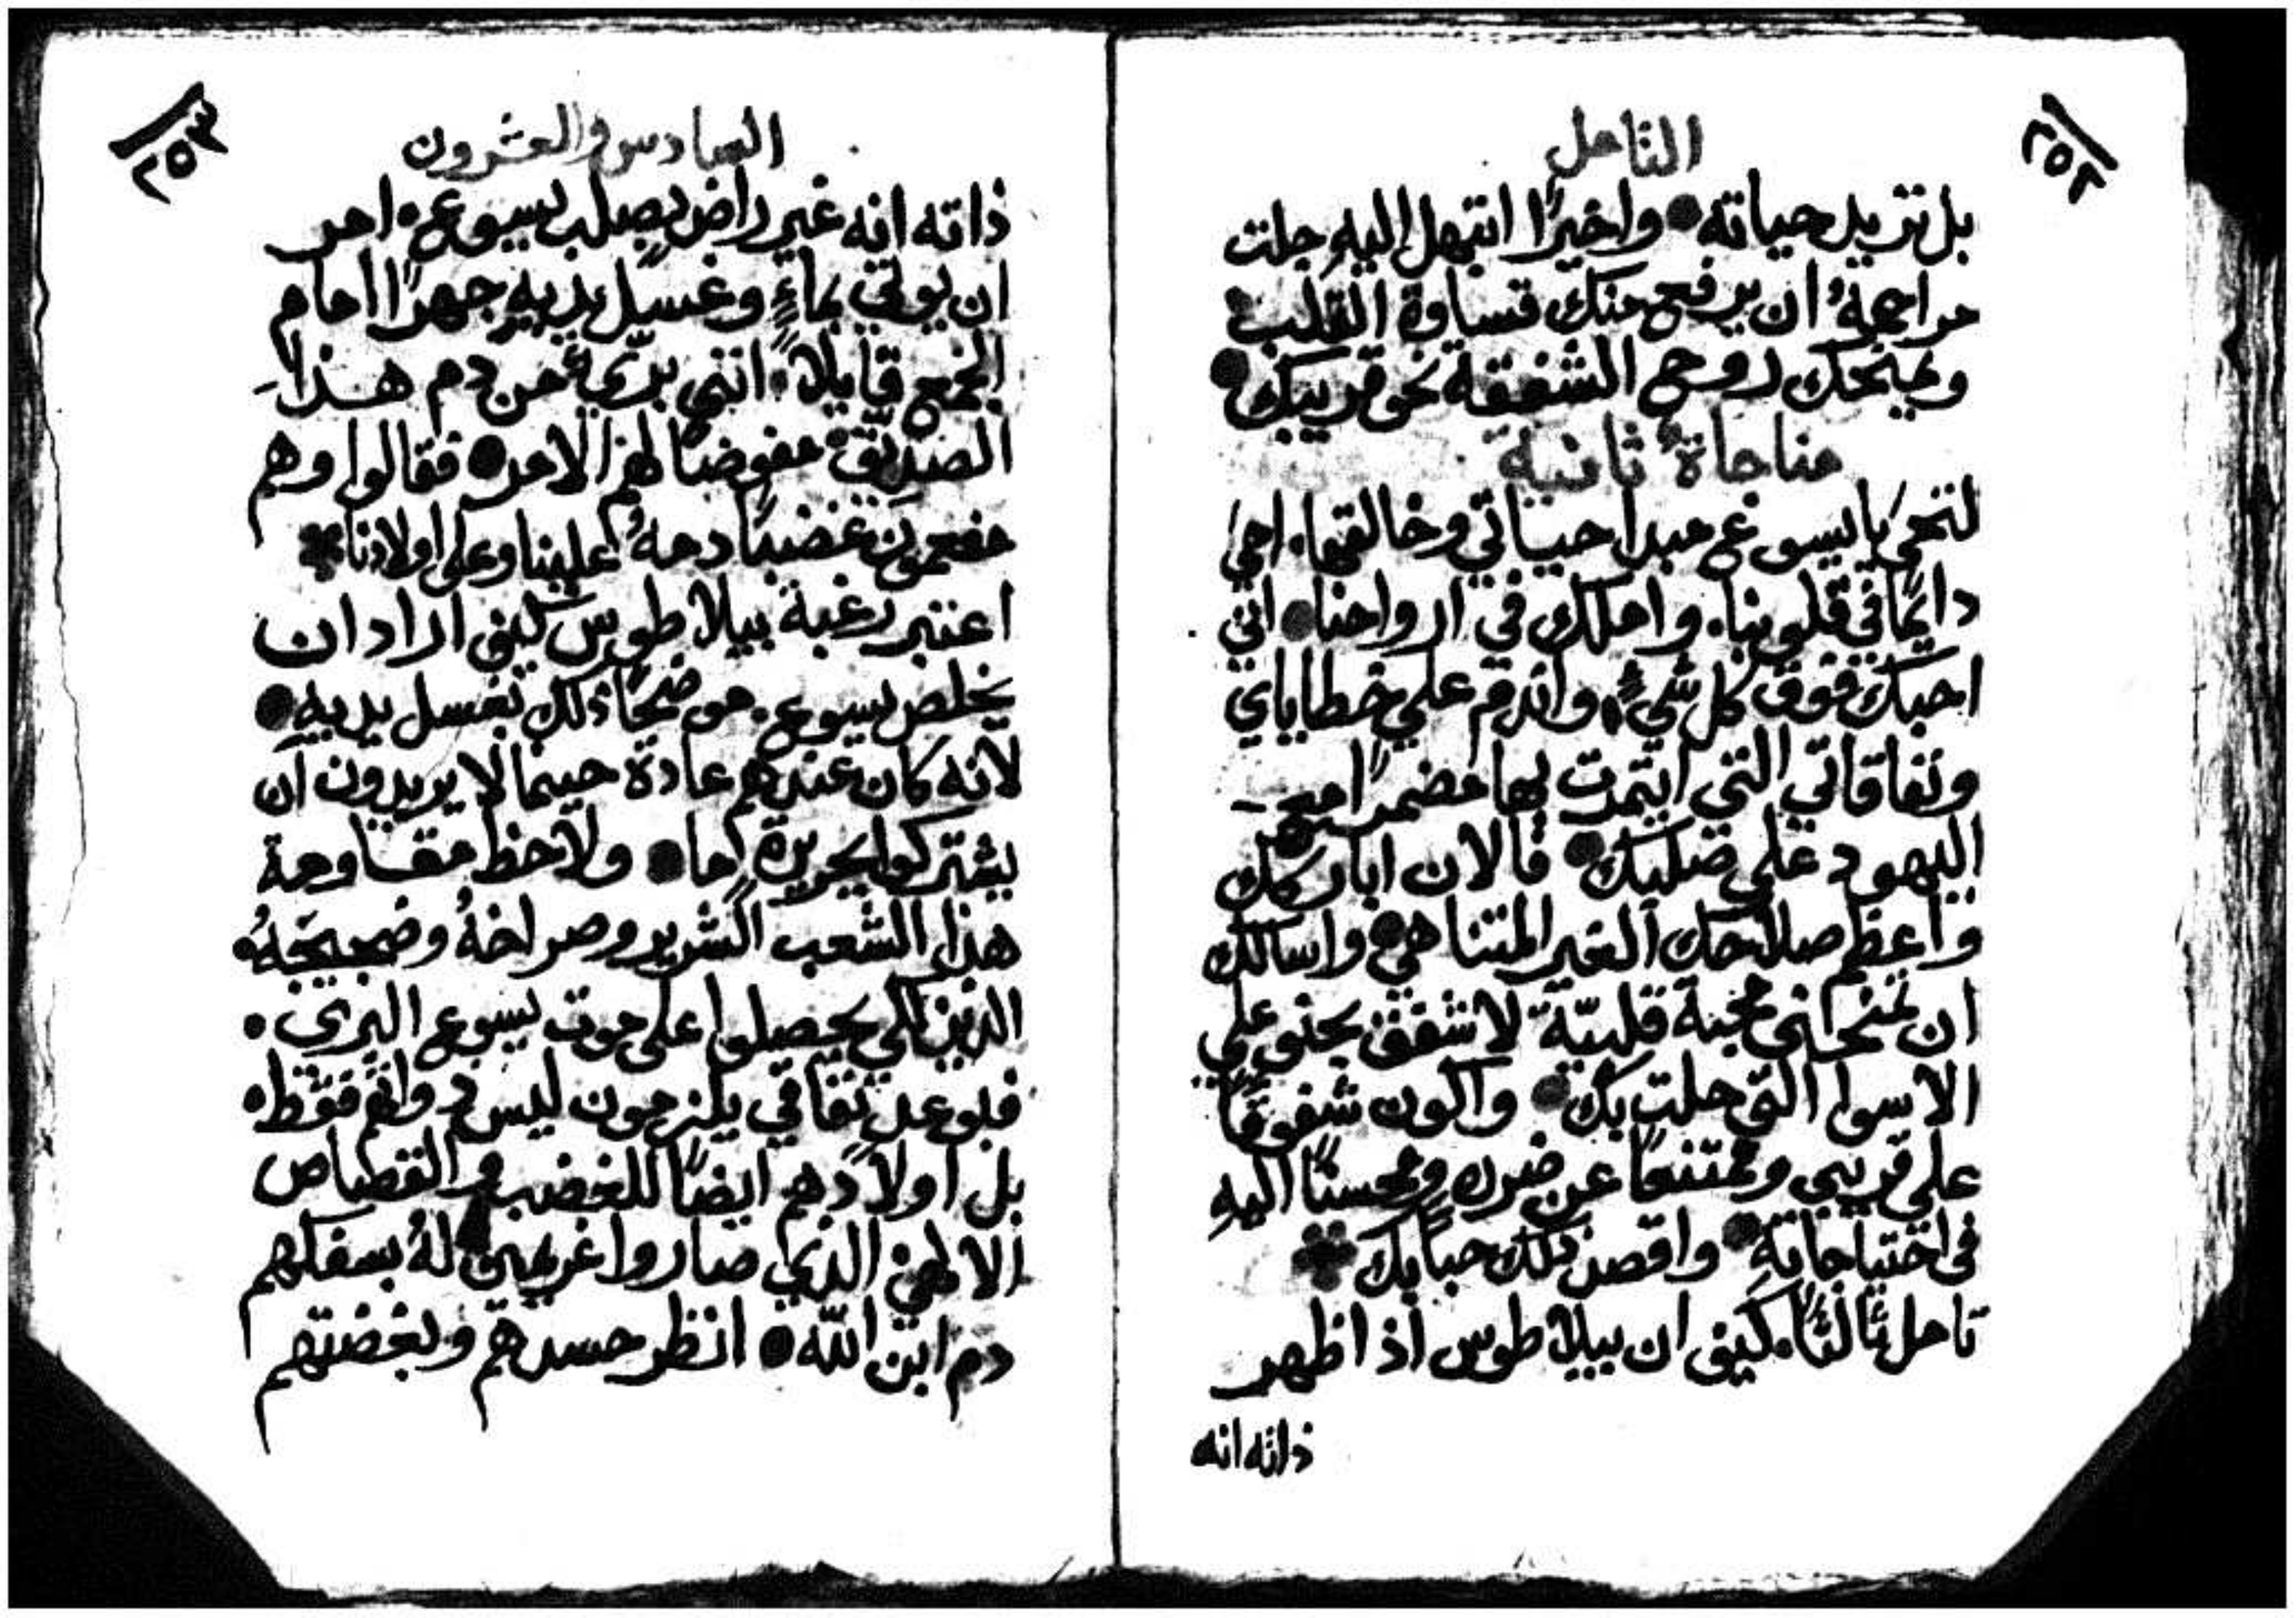 ٢٥٢
التامل
بل تزيل حياته • واخيرًا ابتهل اليهِ جلت
مراحمهُ ان يرفع منك قساوة القلب
ويمنحك روح الشفقه نحو قريبك •
مناجاةٌ ثانية
لنحيَ يا يسوع مبدا حياتي وخالقها. احيَ
دايمًا في قلوبنا. واملك في ارواحنا • انني
احبك فوق كل شيءٍ، واندم علي خطاياي
ونفاقاتي التي ايتمرت بها مضمرًا مع
اليهود علي صلبك • فالان اباركك
واعظم صلاحك الغير المتناهي • واسالك
ان تمنحني محبة قلبيّة لاشفق بحنو علي
الاسوا التي حلت بك • واكون شفوقًا
علي قريبي وممتنعًا عن ضرره ومحسنًا اليهِ
في احتياجاتهِ • واقصد ذلك حبًا بك
تامل ثالثًا. كيف ان بيلاطوس اذ اظهر
ذاته انه
٢٥٣
السادس والعشرون
ذاته انه غير راضٍ بصلب يسوع. امر
ان يوتي بماءٍ وغسل يديهِ جهرًا امام
الجمع قايلاً. انني بريءٌ من دم هذا
الصديق مفوضًا لهم الامر • فقالوا وهم
مفعمون غضبًا دمهُ علينا وعلي اولادنا
اعتبر رغبة بيلاطوس كيف اراد ان
يخلص يسوع. موضحًا ذلك بغسل يديه •
لانه كان عندهم عادة حينما لا يريدون ان
يشتركوا بجريرة ما • ولاحظ مقاومة
هذا الشعب الشرير وصراخهُ وضجيجهُ.
الذين لكي يحصلوا علي موت يسوع البري.
فبلوعل نفاقي يلزمون ليس ذواتهم فقط.
بل اولادهم ايضًا للغضب والقصاص
الالهي الذي صاروا غريمين لهُ بسفكهم
دم ابن اللّه • انظر حسدهم وبغضتهم